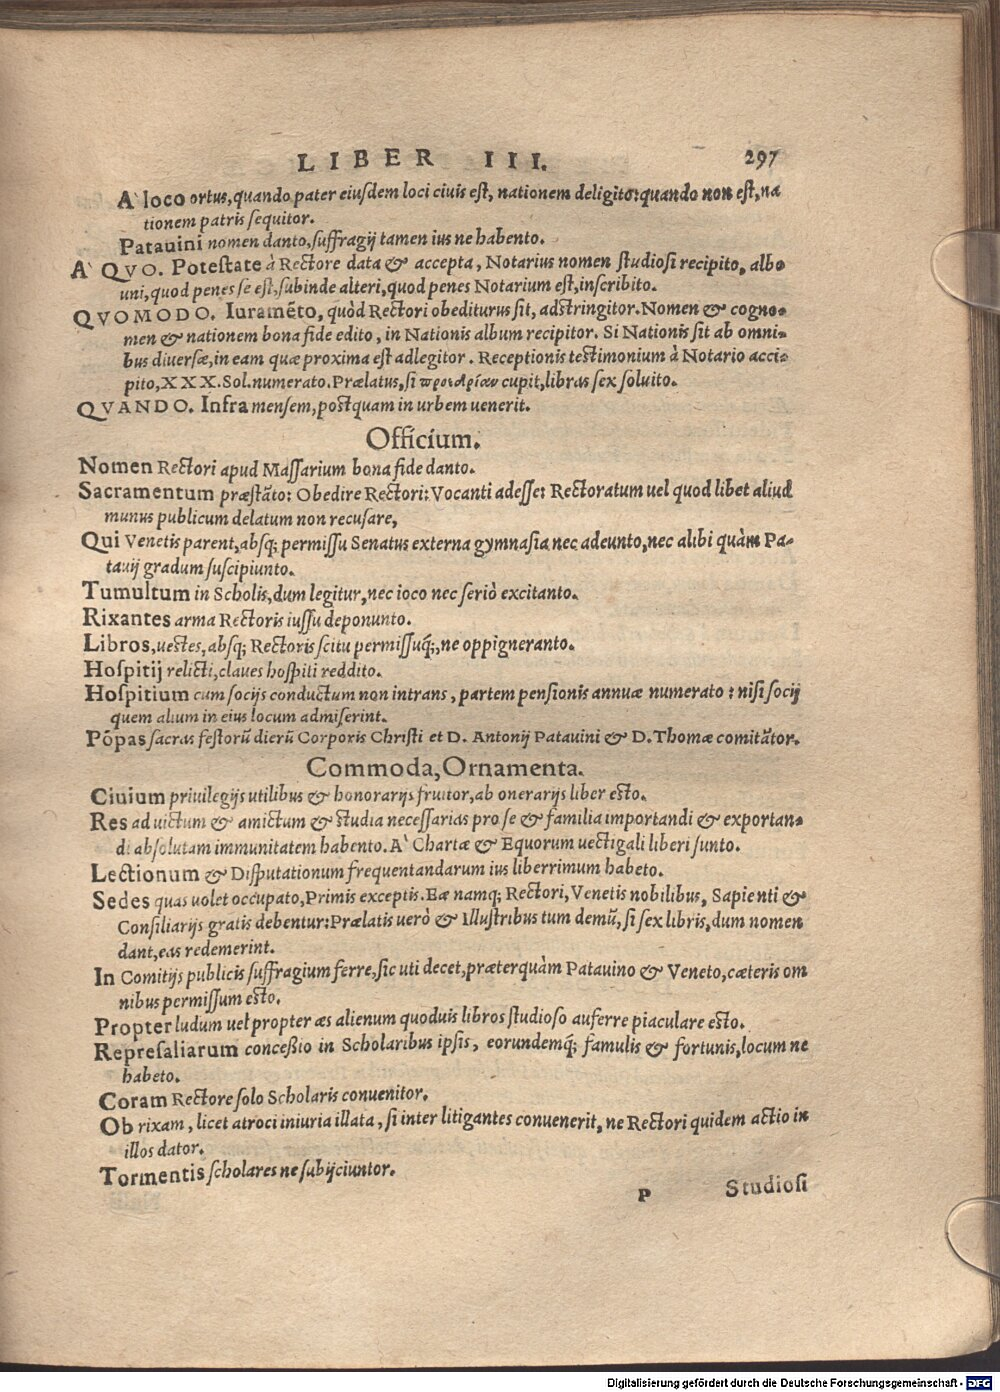 LIBER III. 297
A' loco ortus, quando pater eiusdem loci ciuis est, nationem deligito: quando non est, na
tionem patris sequitor.
Patauini nomen danto, suffragij tamen ius ne habento.
A' QVO. Potestate à Rectore data & accepta, Notarius nomen studiosi recipito, albo
uni, quod penes se est, subinde alteri, quod penes Notarium est, inscribito.
QVOMODO. Iuramẽto, quòd Rectori obediturus sit, adstringitor. Nomen & cogno-
men & nationem bona fide edito, in Nationis album recipitor. Si Nationis sit ab omni-
bus diuersæ, in eam quæ proxima est adlegitor. Receptionis testimonium à Notario acci-
pito, XXX. Sol. numerato. Prælatus, si cupit, libras sex soluito.
QVANDO. Infra mensem, postquam in urbem uenerit.
Officium.
Nomen Rectori apud Massarium bona fide danto.
Sacramentum præstãto: Obedire Rectori: Vocanti adesse: Rectoratum uel quod libet aliud
munus publicum delatum non recusare,
Qui Venetis parent, absq; permissu Senatus externa gymnasia nec adeunto, nec alibi quàm Pa-
tauij gradum suscipiunto.
Tumultum in Scholis, dum legitur, nec ioco nec seriò excitanto.
Rixantes arma Rectoris iussu deponunto.
Libros, uestes, absq; Rectoris scitu permissuq́;, ne oppigneranto.
Hospitij relicti, claues hospiti reddito.
Hospitium cum socijs conductum non intrans, partem pensionis annuæ numerato: nisi socij
quem alium in eius locum admiserint.
Põpas sacras festorũ dierũ Corporis Christi et D. Antonij Patauini & D. Thomæ comitãtor.
Commoda, Ornamenta.
Ciuium priuilegijs utilibus & honorarijs fruitor, ab onerarijs liber esto.
Res ad uictum & amictum & studia necessarias pro se & familia importandi & exportan-
di absolutam immunitatem habento. A' Chartæ & Equorum uectigali liberi sunto.
Lectionum & Disputationum frequentandarum ius liberrimum habeto.
Sedes quas uolet occupato, Primis exceptis. Eæ namq; Rectori, Venetis nobilibus, Sapienti &
Consiliarijs gratis debentur: Prælatis uerò & Illustribus tum demũ, si sex libris, dum nomen
dant, eas redemerint.
In Comitijs publicis suffragium ferre, sic uti decet, præterquàm Patauino & Veneto, cæteris om
nibus permissum esto.
Propter ludum uel propter æs alienum quoduis libros studioso auferre piaculare esto.
Represaliarum concessio in Scholaribus ipsis, eorundemq́; famulis & fortunis, locum ne
habeto.
Coram Rectore solo Scholaris conuenitor.
Ob rixam, licet atroci iniuria illata, si inter litigantes conuenerit, ne Rectori quidem actio in
illos dator.
Tormentis scholares ne subijciuntor.
P Studiosi
Digitalisierung gefördert durch die Deutsche Forschungsgemeinschaft - DFG